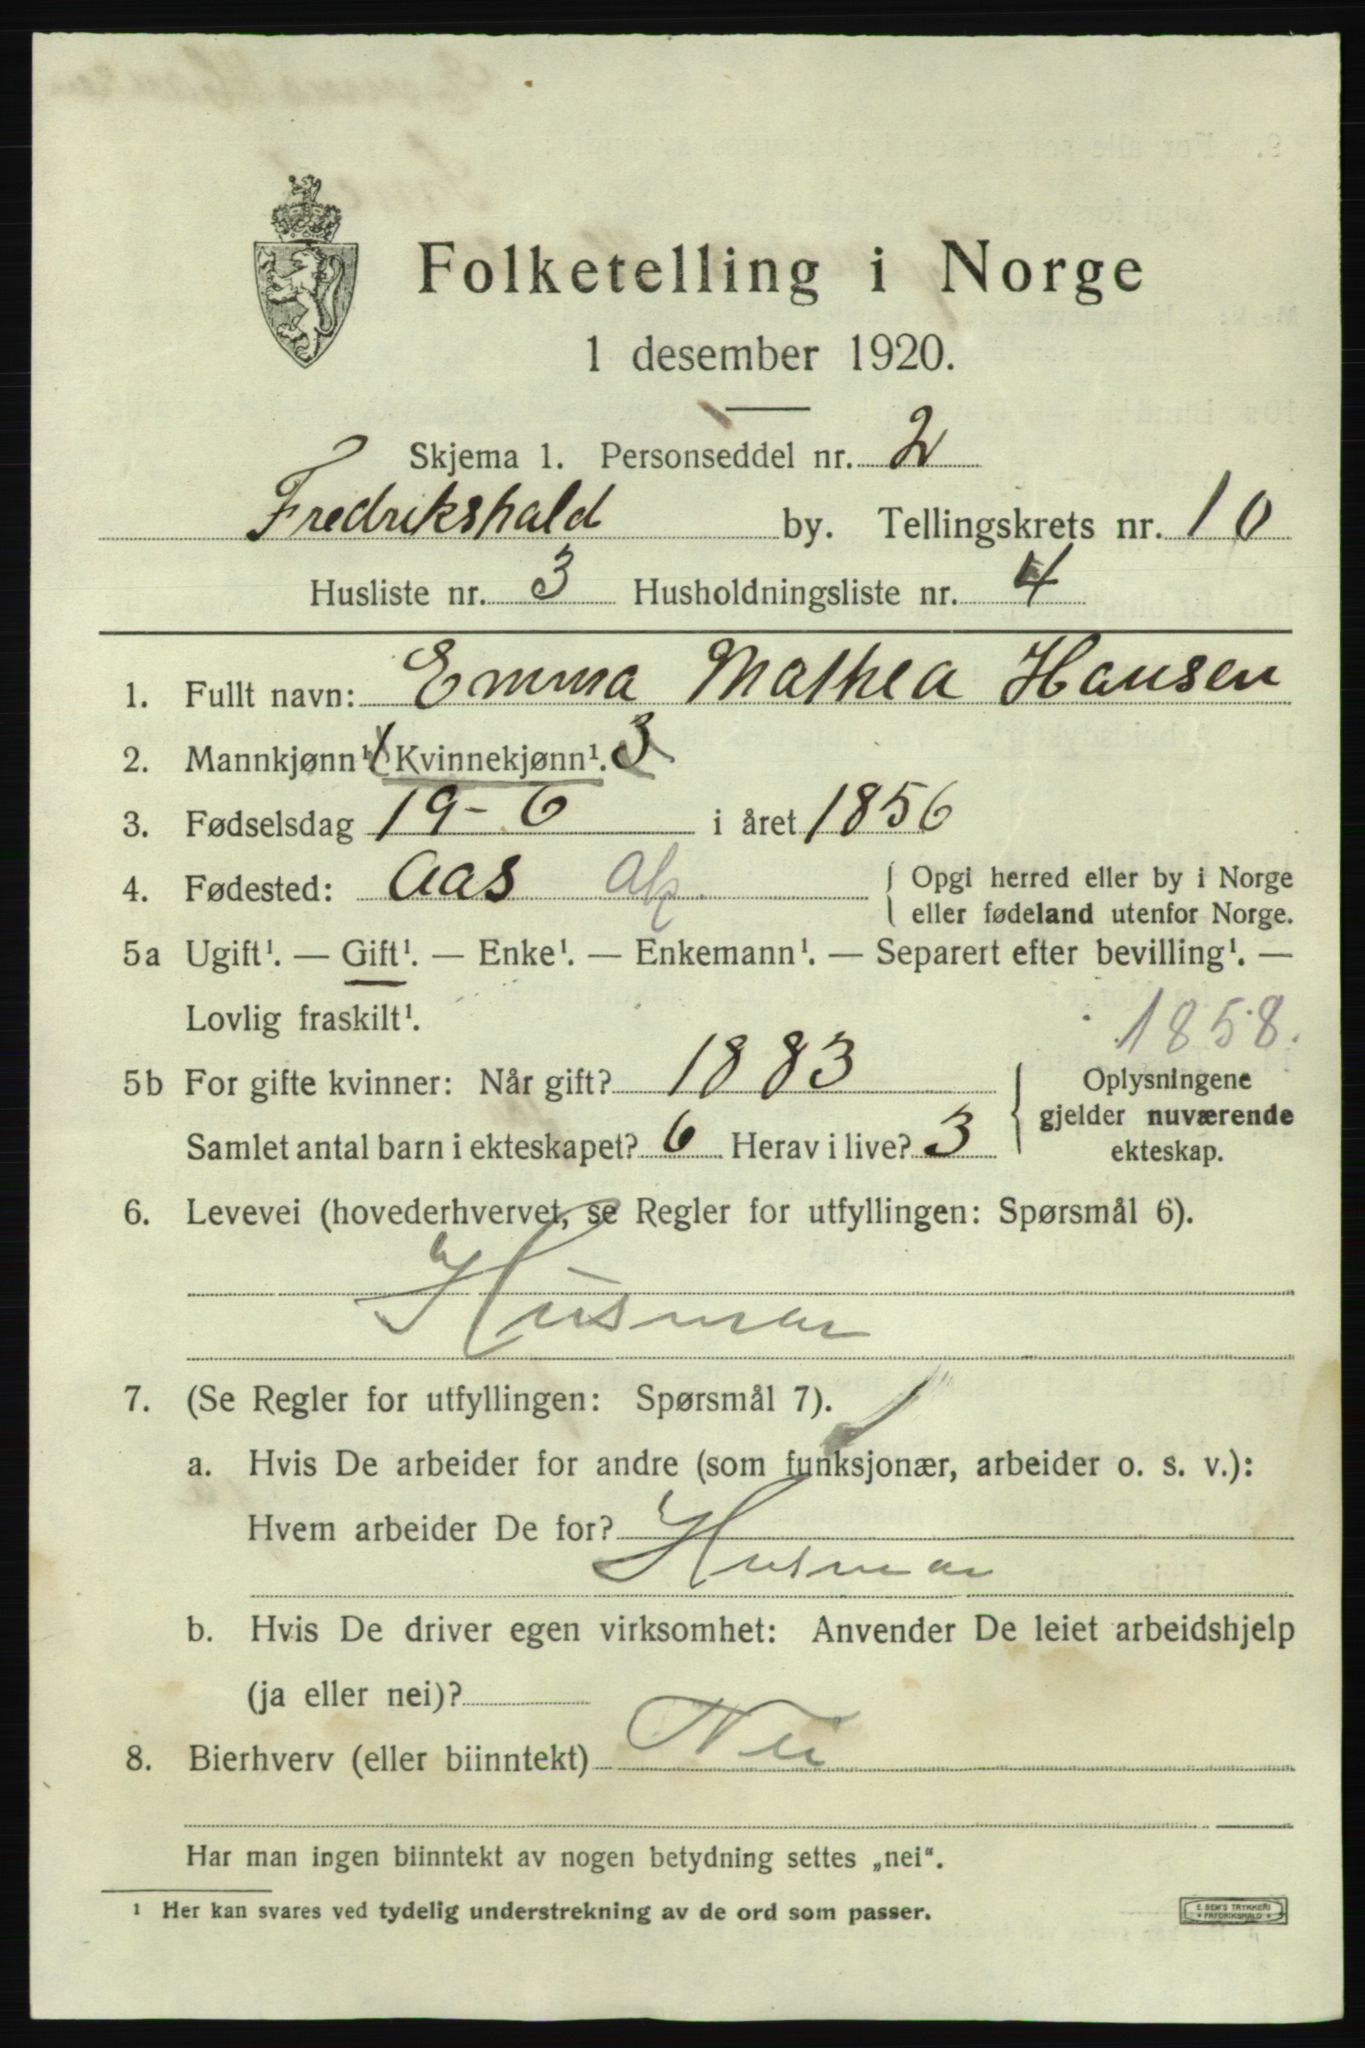 Folketelling i Norge
1 desember 1920.
Skjema 1. Personseddel nr. 2
Fredrikshald by. Tellingskrets nr. 10
Husliste nr. 3 Husholdningsliste nr. 4
1. Fullt navn: Emma Mathea Hansen
2. Mannkjønn¹. Kvinnekjønn¹. 3
3. Fødselsdag 19-6 i året 1856
4. Fødested: Aas Ak. Opgi herred eller by i Norge
eller fødeland utenfor Norge.
5a Ugift¹. — Gift¹. — Enke¹. — Enkemann¹. — Separert efter bevilling¹. —
Lovlig fraskilt¹.
1858.
5b For gifte kvinner: Når gift? 1883 Oplysningene
gjelder nuværende
Samlet antal barn i ekteskapet? 6 Herav i live? 3 ekteskap.
6. Levevei (hovederhvervet, se Regler for utfyllingen: Spørsmål 6).
Husmor
7. (Se Regler for utfyllingen: Spørsmål 7).
a. Hvis De arbeider for andre (som funksjonær, arbeider o. s. v.):
Hvem arbeider De for? Husmor
b. Hvis De driver egen virksomhet: Anvender De leiet arbeidshjelp
(ja eller nei)?
8. Bierhverv (eller biinntekt) Nei
Har man ingen biinntekt av nogen betydning settes „nei“.
¹ Her kan svares ved tydelig understrekning av de ord som passer.
E. SEM'S TRYKKERI
FREDRIKSHALD